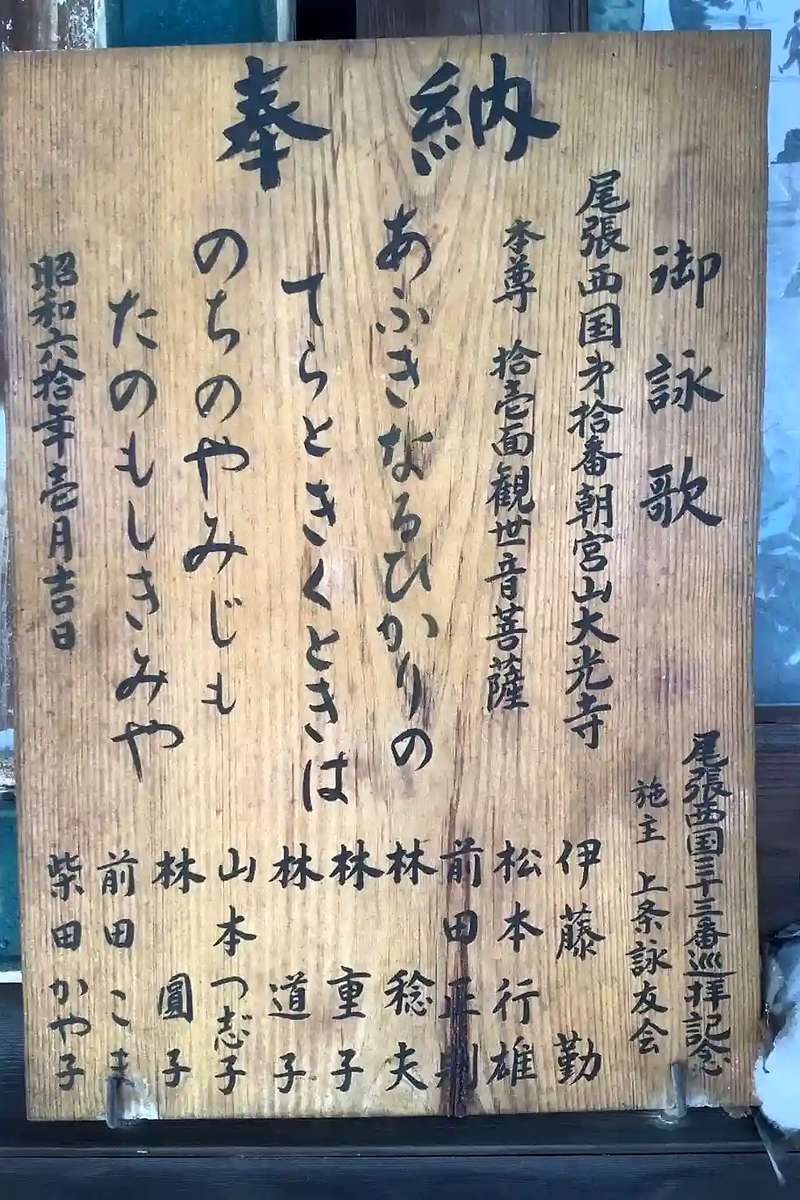 奉納
御詠歌
尾張西国第拾番朝宮山大光寺
本尊 拾壱面観世音菩薩
あふきなるひかりの
てらときくときは
のちのやみじも
たのもしきみや
昭和六拾年壱月吉日
尾張西国三十三番巡拝記念
施主 上条詠友会
伊藤 勤
松本行雄
前田正則
林 稔夫
林 重子
林 道子
山本つぢ子
林 圓子
前田こま
柴田かや子